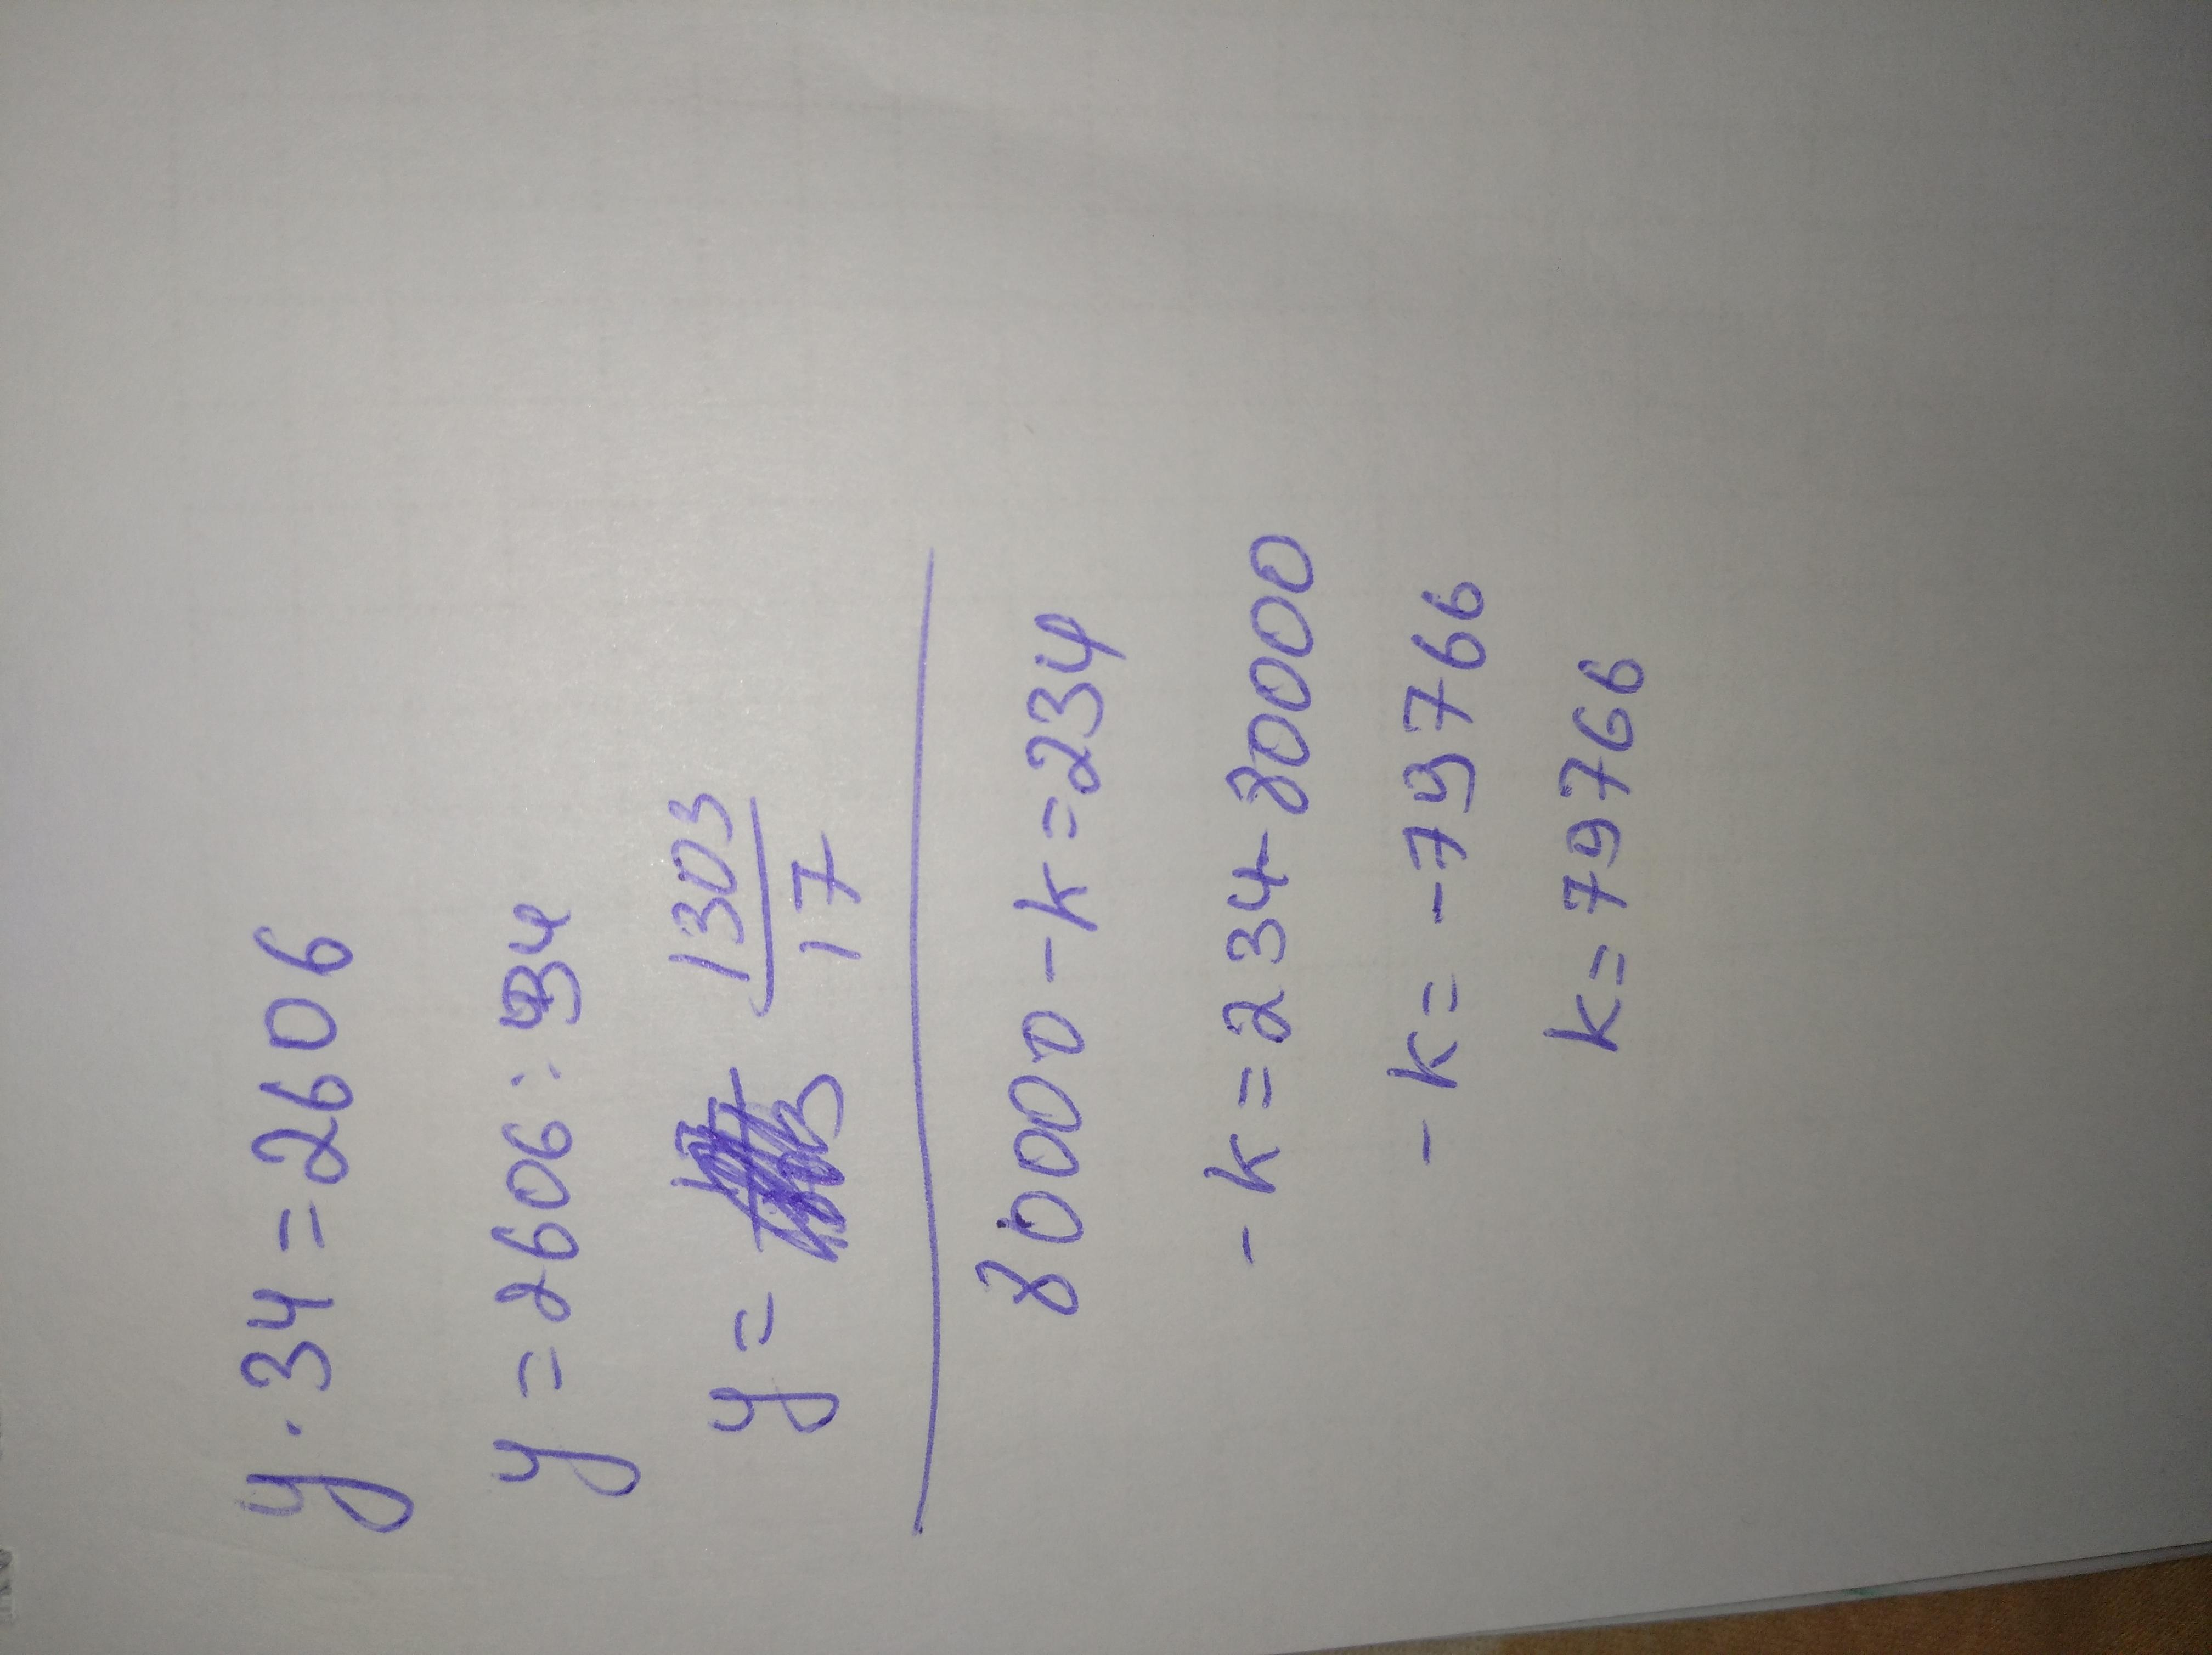 y · 34 = 2606
y = 2606 : 34
y = 1303/17
80000 - k = 234
-k = 234 - 80000
-k = -79766
k = 79766